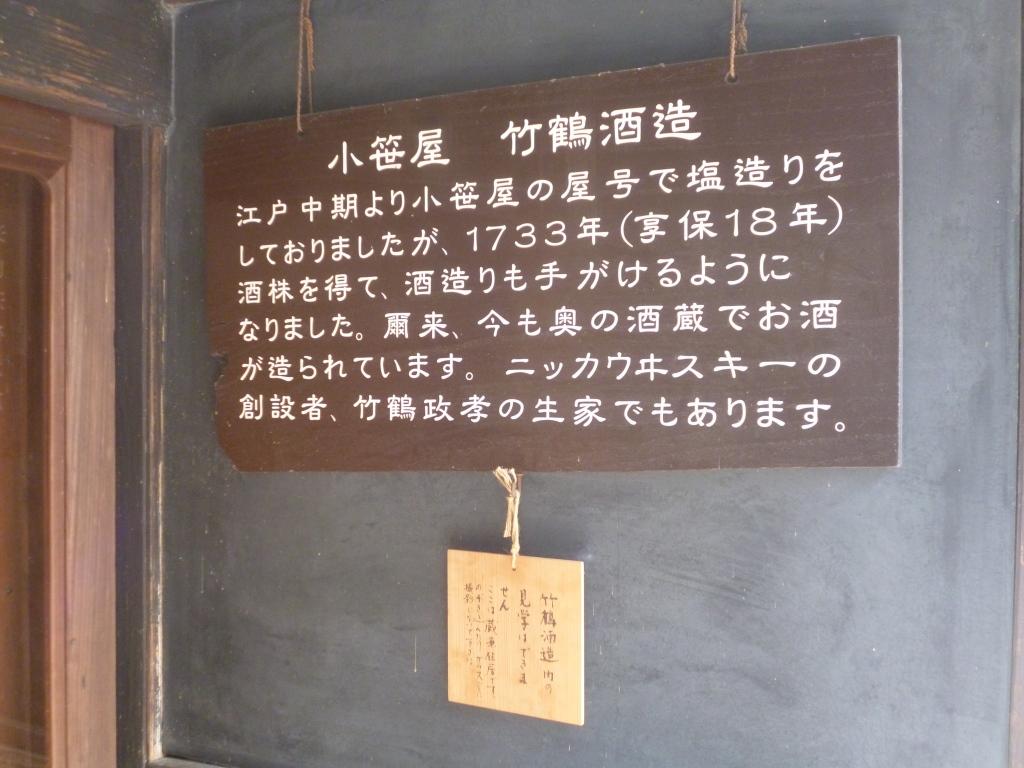 小笹屋　竹鶴酒造
江戸中期より小笹屋の屋号で塩造りを
しておりましたが、1733年(享保18年)
酒株を得て、酒造りも手がけるように
なりました。爾来、今も奥の酒蔵でお酒
が造られています。ニッカウヰスキーの
創設者、竹鶴政孝の生家でもあります。
竹鶴酒造内の
見学はできま
せん
ここは蔵兼住居です。